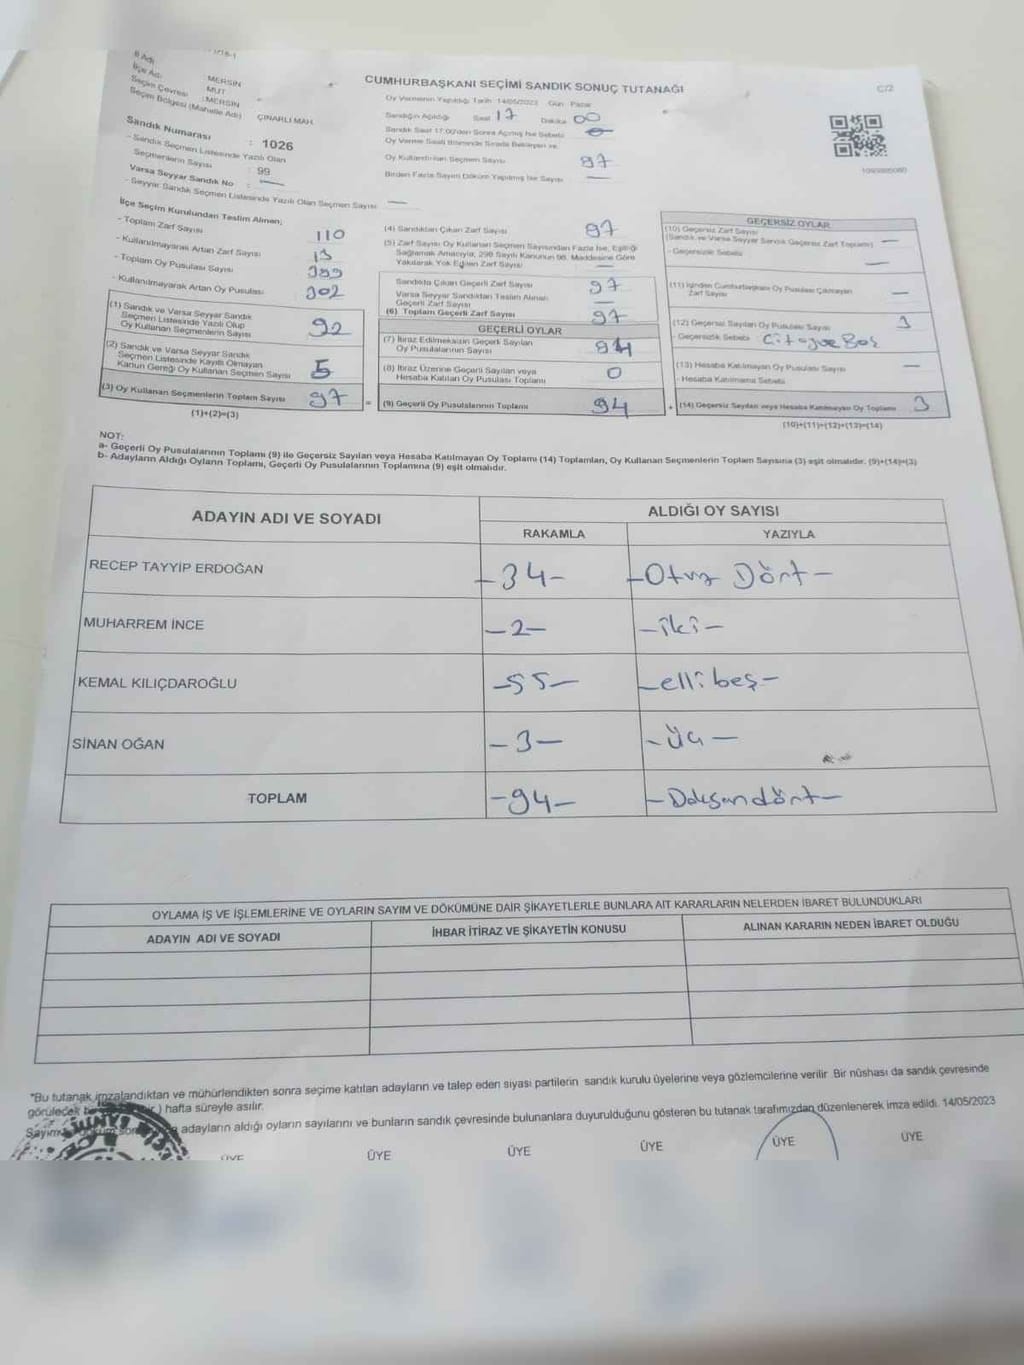 İl Adı : MERSİN
İlçe Adı : MUT
Seçim Çevresi : MERSİN
Seçim Bölgesi (Mahalle Adı) ÇINARLI MAH.
Sandık Numarası : 1026
- Sandık Seçmen Listesinde Yazılı Olan
Seçmenlerin Sayısı : 99
Varsa Seyyar Sandık No : —
- Seyyar Sandık Seçmen Listesinde Yazılı Olan Seçmen Sayısı —
CUMHURBAŞKANI SEÇİMİ SANDIK SONUÇ TUTANAĞI
C/2
Oy Vermenin Yapıldığı Tarih 14/05/2023 Gün Pazar
Sandığın Açıldığı Saat 17 Dakika 00
Sandık Saat 17:00'den Sonra Açılmış İse Sebebi
Oy Kullandırılan Seçmen Sayısı 97
Birden Fazla Sayım Döküm Yapılmış İse Sayısı —
İlçe Seçim Kurulundan Teslim Alınan;
- Toplam Zarf Sayısı 110
- Kullanılmayarak Artan Zarf Sayısı 13
- Toplam Oy Pusulası Sayısı
- Kullanılmayarak Artan Oy Pusulası 302
(1) Sandık ve Varsa Seyyar Sandık
Seçmen Listesinde Yazılı Olup
Oy Kullanan Seçmenlerin Sayısı 92
(2) Sandık ve Varsa Seyyar Sandık
Seçmen Listesinde Kayıtlı Olmayan
Kanun Gereği Oy Kullanan Seçmen Sayısı 5
(3) Oy Kullanan Seçmenlerin Toplam Sayısı 97
(1)+(2)=(3)
(4) Sandıktan Çıkan Zarf Sayısı 97
(5) Zarf Sayısı Oy Kullanan Seçmen Sayısından Fazla İse, Eşitliği
Sağlamak Amacıyla, 298 Sayılı Kanunun 98. Maddesine Göre
Yakılarak Yok Edilen Zarf Sayısı —
Sandıkta Çıkan Geçerli Zarf Sayısı 97
Varsa Seyyar Sandıktan Teslim Alınan
Geçerli Zarf Sayısı —
(6) Toplam Geçerli Zarf Sayısı 97
GEÇERLİ OYLAR
(7) İtiraz Edilmeksizin Geçerli Sayılan
Oy Pusulalarının Sayısı 94
(8) İtiraz Üzerine Geçerli Sayılan veya
Hesaba Katılan Oy Pusulası Toplamı 0
= (9) Geçerli Oy Pusulalarının Toplamı 94
GEÇERSİZ OYLAR
(10) Geçersiz Zarf Sayısı
(Sandık ve Varsa Seyyar Sandık Geçersiz Zarf Toplamı) —
- Geçersizlik Sebebi —
(11) İçinden Cumhurbaşkanı Oy Pusulası Çıkmayan
Zarf Sayısı —
(12) Geçersiz Sayılan Oy Pusulası Sayısı 3
- Geçersizlik Sebebi
(13) Hesaba Katılmayan Oy Pusulası Sayısı —
- Hesaba Katılmama Sebebi
+ (14) Geçersiz Sayılan veya Hesaba Katılmayan Oy Toplamı 3
(10)+(11)+(12)+(13)=(14)
NOT:
a- Geçerli Oy Pusulalarının Toplamı (9) ile Geçersiz Sayılan veya Hesaba Katılmayan Oy Toplamı (14) Toplamları, Oy Kullanan Seçmenlerin Toplam Sayısına (3) eşit olmalıdır. (9)+(14)=(3)
b- Adayların Aldığı Oyların Toplamı, Geçerli Oy Pusulalarının Toplamına (9) eşit olmalıdır.
ADAYIN ADI VE SOYADI
ALDIĞI OY SAYISI
RAKAMLA YAZIYLA
RECEP TAYYİP ERDOĞAN -34- -Otuz Dört-
MUHARREM İNCE -2- -iki-
KEMAL KILIÇDAROĞLU -55- -elli beş-
SİNAN OĞAN -3- -üç-
TOPLAM -94- -Doksandört-
OYLAMA İŞ VE İŞLEMLERİNE VE OYLARIN SAYIM VE DÖKÜMÜNE DAİR ŞİKAYETLERLE BUNLARA AİT KARARLARIN NELERDEN İBARET BULUNDUKLARI
ADAYIN ADI VE SOYADI İHBAR İTİRAZ VE ŞİKAYETİN KONUSU ALINAN KARARIN NEDEN İBARET OLDUĞU
"Bu tutanak imzalandıktan ve mühürlendikten sonra seçime katılan adayların ve talep eden siyasi partilerin sandık kurulu üyelerine veya gözlemcilerine verilir. Bir nüshası da sandık çevresinde
görülecek ) hafta süreyle asılır.
adayların aldığı oyların sayılarını ve bunların sandık çevresinde bulunanlara duyurulduğunu gösteren bu tutanak tarafımızdan düzenlenerek imza edildi. 14/05/2023
ÜYE ÜYE ÜYE ÜYE ÜYE ÜYE